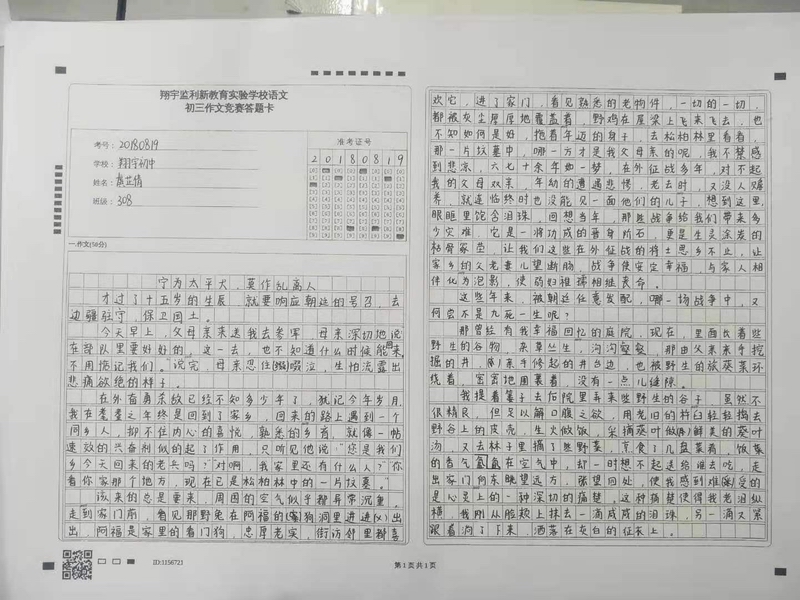 翔宇监利新教育实验学校语文
初三作文竞赛答题卡
考号: 20180819
学校: 翔宇初中
姓名:
班级: 308
准考证号
2 0 1 8 0 8 1 9
一.作文(50分)
宁为太平犬,莫作乱离人
才过了十五岁的生辰,就要响应朝廷的号召,去
边疆驻守,保卫国土。
今天早上,父母亲来送我去参军,母亲深切地说
在部队里要好好的。这一去,也不知道什么时候能回来,
不用惦记我们。"说完,母亲忍住啜泣,生怕流露出
悲痛欲绝的样子。
在外奋勇杀敌已经不知多少年了,犹记今年岁月,
我在耄耋之年终是回到了家乡,回来的路上遇到一个
同乡人,抑不住内心的喜悦,熟悉的乡音,就像一帖
速效的兴奋剂似的起了作用,只听见他说"您是我们
乡今天回来的老兵吗?对啊,我家里还有什么人?你
看你家那个地方,现在已是松柏林中的一片坟墓。"
该来的总是要来,周围的空气似乎都异常沉重。
走到家门前,看见那野兔在阿福的狗洞里进进出
出,阿福是家里的看门狗,忠厚老实,街访邻里都喜
欢它,进了家门,看见熟悉的老物件,一切的一切,
都被灰尘厚厚地覆盖着,野鸡在屋梁上飞来飞去,也
不知如何是好,拖着年迈的身子,去松柏林里看看,
那一片坟墓中,哪一方才是我父母亲的呢,我不禁感
到悲凉,六七十余年如一梦,在外征战多年,对不起
我的父母双亲,年幼的遭遇悲惨,老去时,又没人赡
养,就连临终时也没能见一面他们的儿子,想到这里,
眼眶里饱含泪珠,回想当年,那些战争给我们带来多
少灾难,它是一将功成的晋身阶石,更是生灵涂炭的
枯骨冢茔,让我们这些在外征战的将士思乡不止,让
家乡的父老妻儿望断肠,战争使安定幸福,与家人相
伴化为泡影,使弱妇稚孺相继丧命。
这些年来,被朝廷任意发配,哪一场战争中,又
何尝不是九死一生呢?
那曾经有我幸福回忆的庭院,现在,里面长着些
野生的谷物,杂草丛生,沟沟壑壑,那由父亲亲手挖
掘的井,亲手修起的井台边,也被野生的旅葵菜环
绕着,密密地围裹着,没有一点儿缝隙。
我提着篓子去后院里弄来些野生的谷子,虽然不
很精良,但足以解口腹之欲,用老旧的杵臼轻轻捣去
野谷上的皮壳,生火做饭,采摘葵叶做鲜美的葵叶
汤,又去林子里摘了些野菜,烹煮了几盘菜肴,饭菜
的香气氤氲在空气中,却一时想不起送给谁去吃,走
出家门向东眺望远方,张望何处,使我感到难受的
是心灵上的一种深切的痛楚,这种痛楚使得我老泪纵
横,我刚从脸颊上抹去一滴咸咸的泪珠,另一滴又紧
跟着淌了下来,洒落在灰白的征衣上。
ID:1156721
第1页共1页